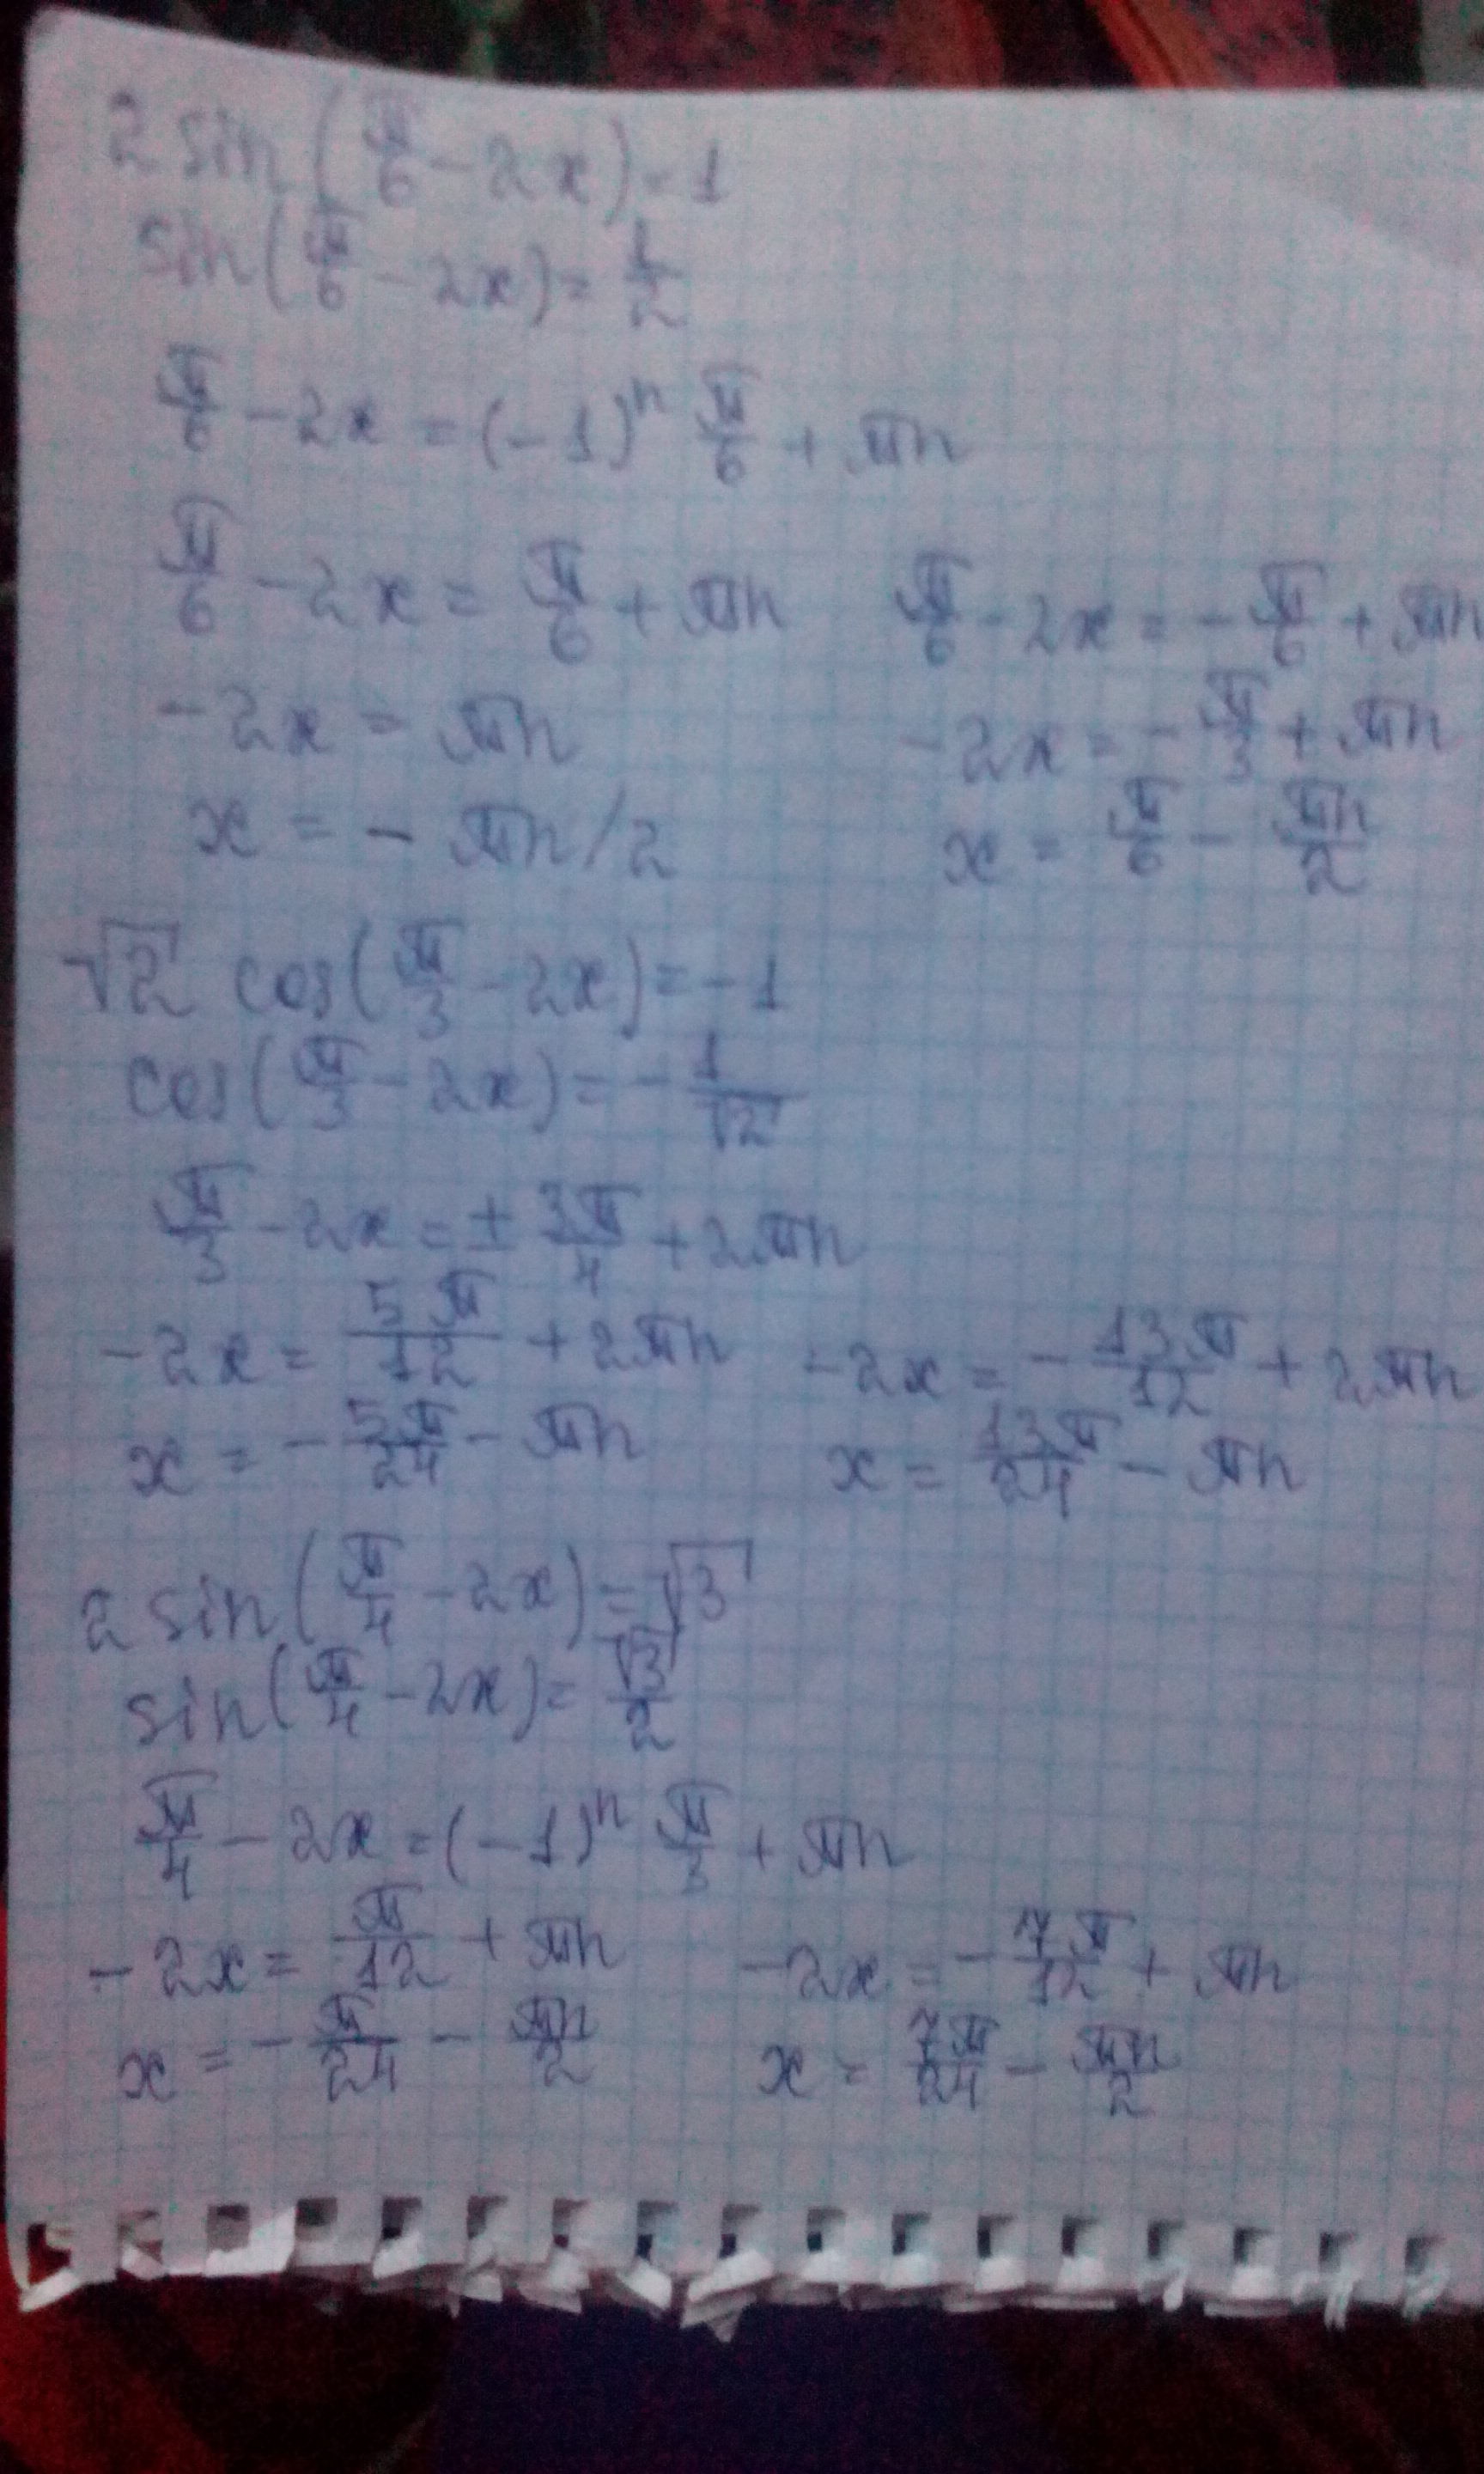 2 sin(π/6 - 2x) = 1
sin(π/6 - 2x) = 1/2
π/6 - 2x = (-1)ⁿ π/6 + πn
π/6 - 2x = π/6 + πn    π/6 - 2x = -π/6 + πn
-2x = πn    -2x = -π/3 + πn
x = - πn/2    x = π/6 - πn/2
√2 cos(π/3 - 2x) = -1
cos(π/3 - 2x) = - 1/√2
π/3 - 2x = ± 3π/4 + 2πn
-2x = 5π/12 + 2πn    -2x = - 13π/12 + 2πn
x = - 5π/24 - πn    x = 13π/24 - πn
2 sin(π/4 - 2x) = √3
sin(π/4 - 2x) = √3/2
π/4 - 2x = (-1)ⁿ π/3 + πn
-2x = π/12 + πn    -2x = - 7π/12 + πn
x = - π/24 - πn/2    x = 7π/24 - πn/2